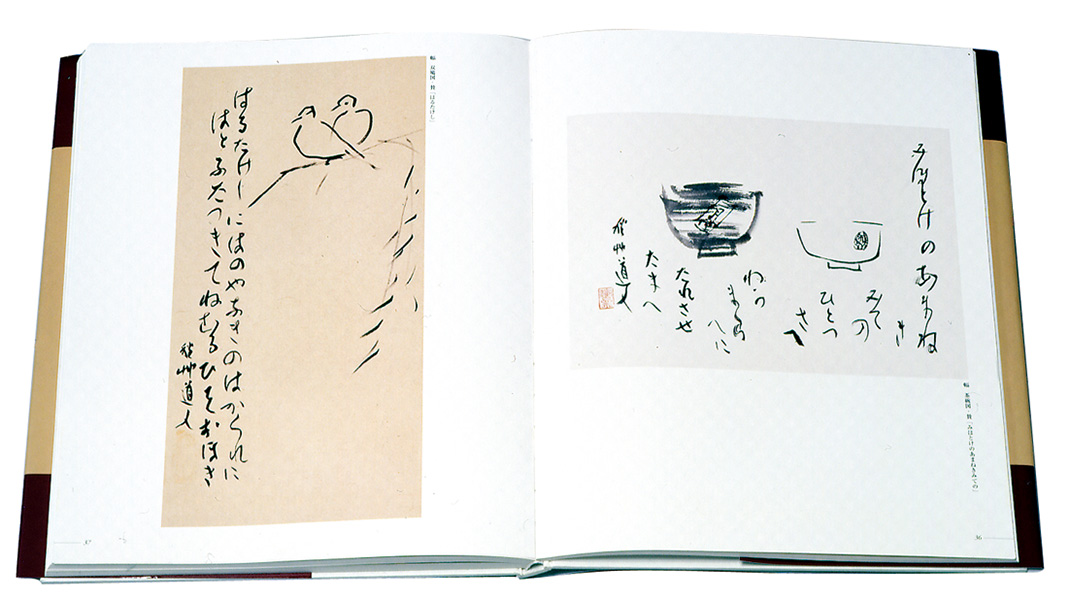 みほとけのあまね
き
みての
ひとつ
さへ
わか
まくらへに
たれさせ
たまへ
秋艸道人
幅 茶碗図・賛「みほとけのあまねきみての」
36
幅 双鳩図・賛「はるたけし」
はるたけしにはのやなきのはかくれに
はとふたつきてねむるひそおほき
秋艸道人
37